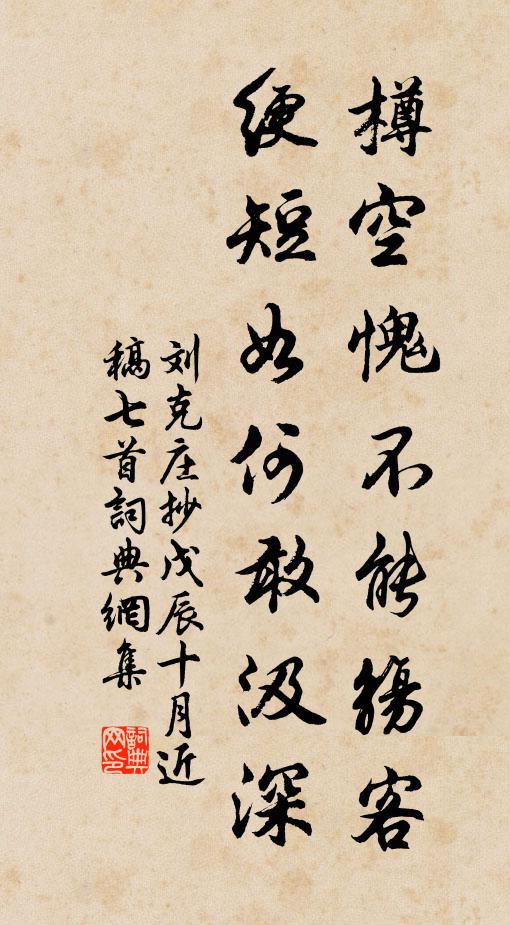 樽空愧不能觴客
綆短如何敢汲深
刘克庄抄戊辰十月近
稿七首詞典網集
詞典网印